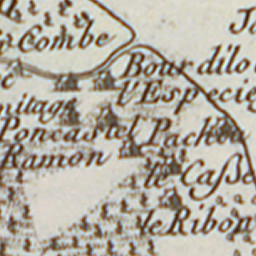 Combe
Bourdilo
l'Especie
mitage
Poncastel Pachou
Ramon
le Casse
le Ribon